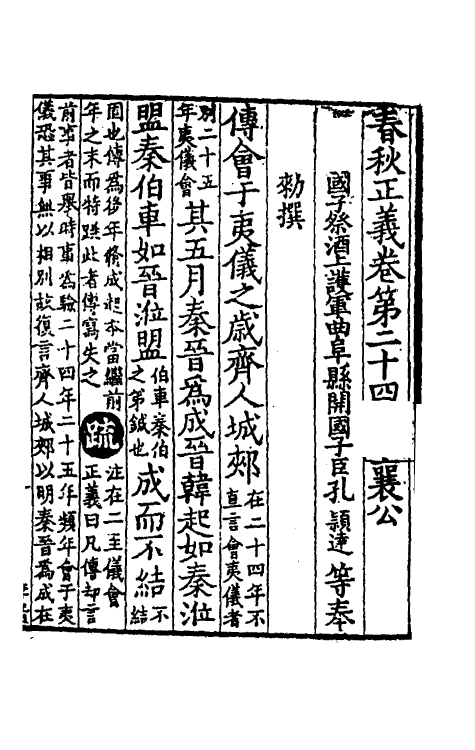 春秋正義卷第二十四 襄公
國子祭酒上護軍曲阜縣開國子臣孔 穎達 等奉
勑撰
傳會于夷儀之歲齊人城郟在二十四年不
直言會夷儀者
別二十五
年夷儀會其五月秦晉為成晉韓起如秦涖
盟秦伯車如晉涖盟伯車秦伯
之弟鍼也成而不結不
結
固也傳為後年脩成起本當繼前
年之末而特跳此者傳寫失之疏注在二至儀會
正義曰凡傳却言
前年者皆舉時事為驗二十四年二十五年頻年會于夷
儀恐其事無以相別故復言齊人城郟以明秦晉為成在